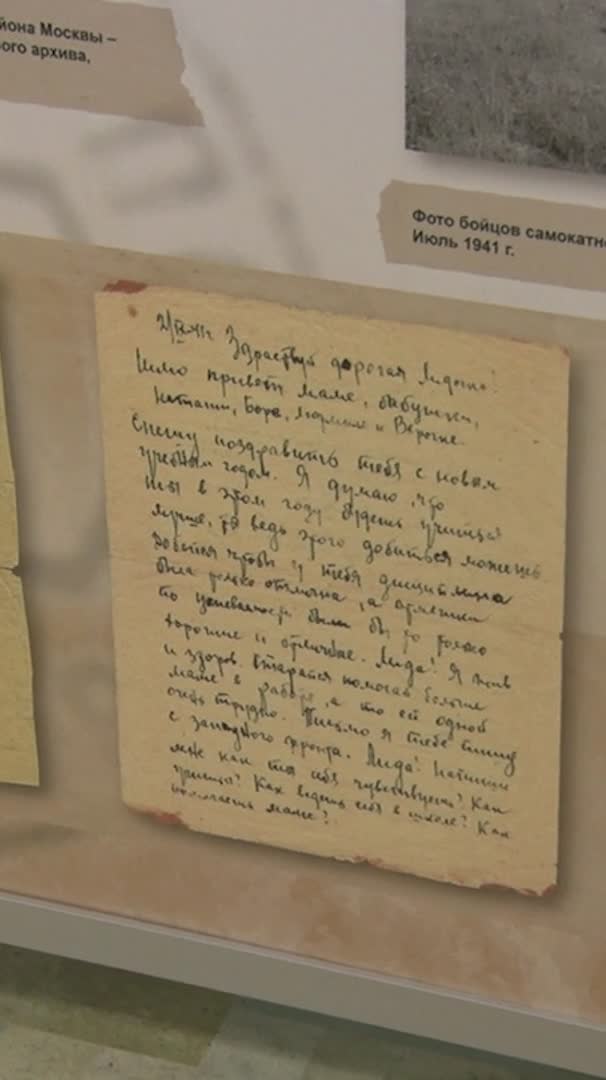 йона Москвы –
ого архива,
Фото бойцов самокатн
Июль 1941 г.
Здраствуй дорогая Лидочка!
Шлю привет маме, бабушки,
Наташи, Боре, Людмиле и Верочке.
Спешу поздравить тебя с новым
учебным годом. Я думаю, что
ты в этом году будешь учиться
лучше, ведь этого добиться можешь
добейся чтобы у тебя дисциплина
была только отлична, а отметки
по успеваемости были бы только
хорошие и отличные. Лида! Я жив
и здоров. Старайся помогай больше
маме в работе, а то ей одной
очень трудно. Письмо я тебе пишу
с западного фронта. Лида! Напиши
мне как ты себя чувствуешь? Как
учишься? Как ведешь себя в школе? Как
помогаешь маме?